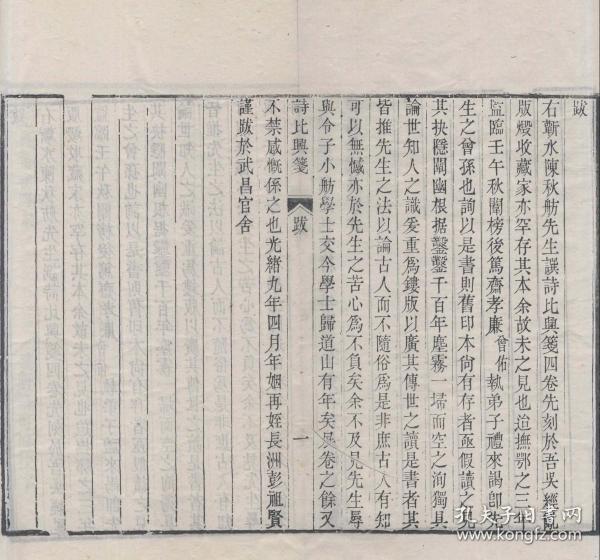 跋
右蘄水陳秋舫先生譔詩比興箋四卷先刻於吾吳經亂
版燬收藏家亦罕存其本余故未之見也迨撫鄂之三年
監臨壬午秋闈榜後篤齋孝廉曾佑執弟子禮來謁卽先
生之曾孫也詢以是書則舊印本尙有存者亟假讀之見
其抉隱闡幽根据鑿鑿千百年塵霧一埽而空之洵獨具
論世知人之識爰重爲鏤版以廣其傳世之讀是書者其
皆推先生之法以論古人而不隨俗爲是非庶古人有知
可以無憾亦於先生之苦心爲不負矣余不及見先生辱
與令子小舫學士交今學士歸道山有年矣展卷之餘又
詩比興箋 跋 一
不禁感慨係之也光緒九年四月年姻再姪長洲彭祖賢
謹跋於武昌官舍
孔夫子旧书网